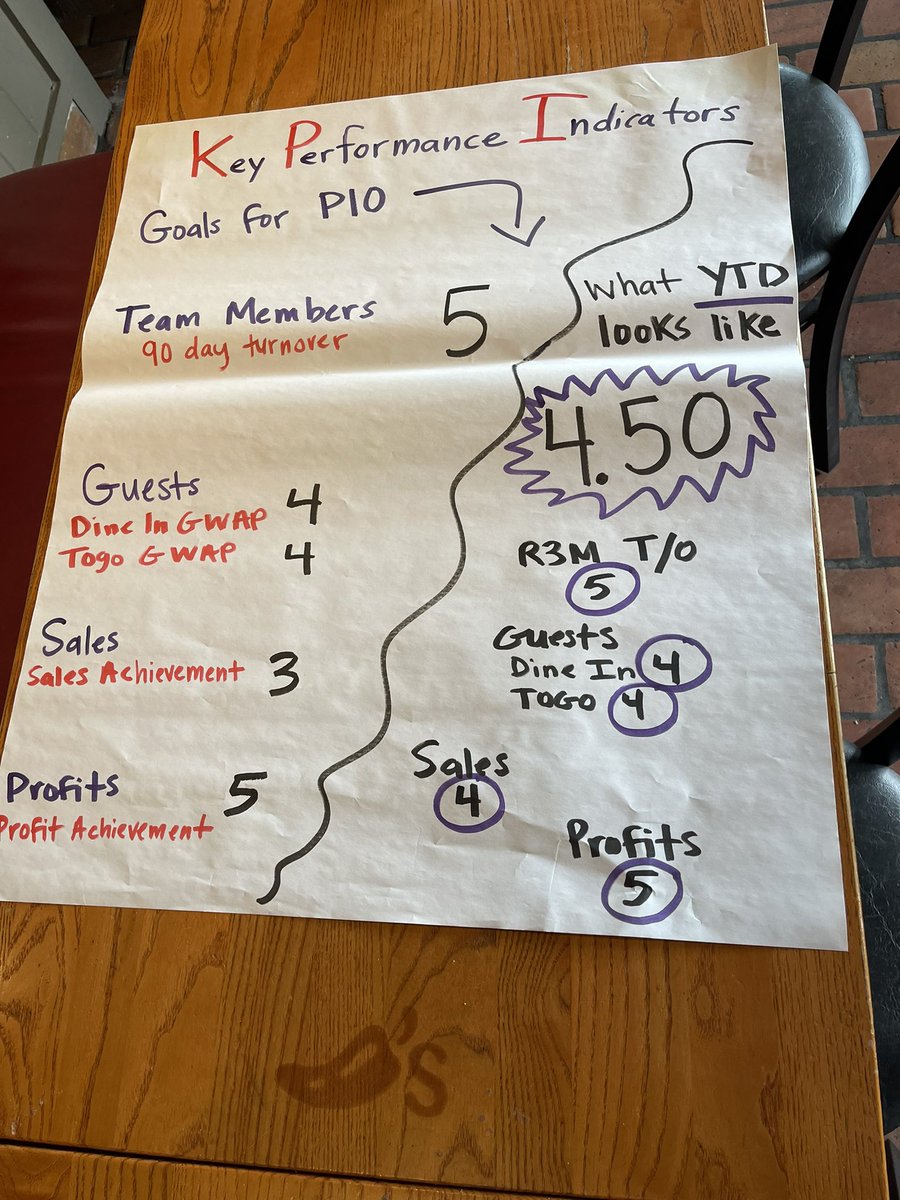 Key Performance Indicators
Goals for P10
Team Members 5
90 day turnover
Guests
Dine In GWAP 4
Togo GWAP 4
Sales
Sales Achievement 3
Profits
Profit Achievement 5
What YTD
looks like
4.50
R3M T/O
5
Guests
Dine In 4
TOGO 4
Sales
4
Profits
5
's